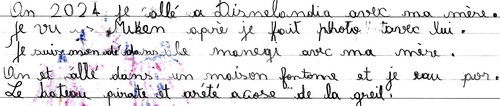 On 2024 je allé a Disnelandia avec ma mère.
Je vu Miken aprè je fait photo avec lui.
Je suis mondé dans le manegi avec ma mère.
On et allé dans un maison fontome et je eau per.
Le bateau pirate et arété acose de la greil.